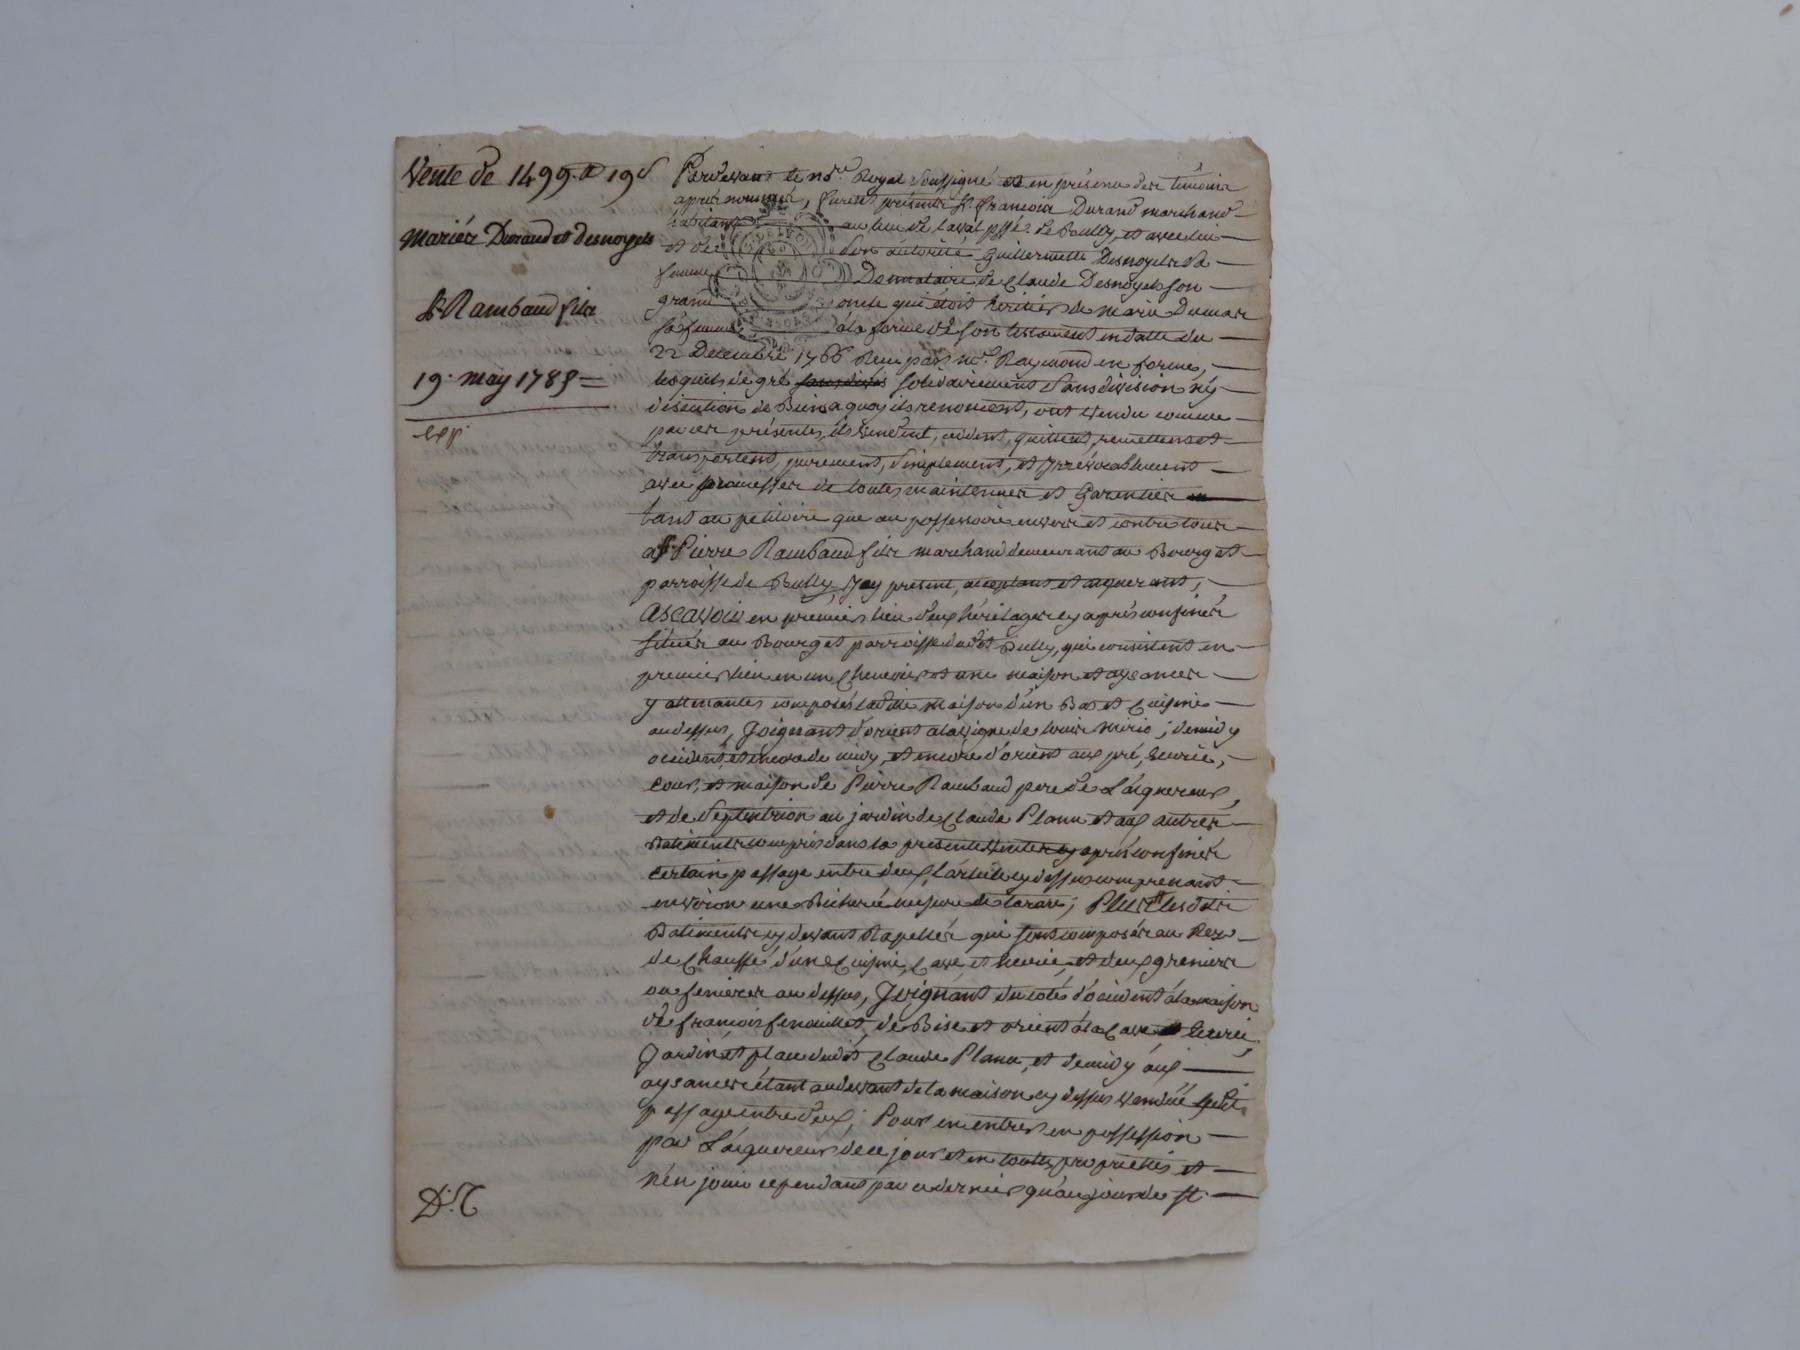 Vente de 1499.tt 19s
mariés Durand et desnoyels
Sr Rambaud fils
19. may 1785
exp.
Pardevant le nore Royal soussigné et en présence des temoins
après nommés, furent présents sr francois Durand marchand
habitant au lieu de Laval psse de Bully, et avec lui
et de son autorité Guillermette Desnoyels sa
femme Donnataire de Claude Desnoyels son
grand oncle qui étoit heritier de marie Dumas
sa femme a la forme de son testament en datte du
22 Decembre 1766 Reçu par me. Raymond en forme,
lesquels de gré solidairement sans division ny
discution de Biens a quoy ils renoncent, ont vendu comme
par ces présentes, ils vendent, cèdent, quittent, remettent et
transportent, purement, simplement, et jrrévocablement
avec promesses de toutes maintenues et Garenties
tant au petitoire que au possessoire envers et contre tous
a sr Pierre Rambaud fils marchand demeurant au Bourg et
parroisse de Bully, jcy present, acceptant et aquerant,
ascavoir en premier lieu deux héritages cy après confinés
situés au Bourg et parroisse dudit Bully, qui consistent en
premier lieu en un Chenevier et une maison et aysances
y attenantes composés ladite maison d'un Bas et Cuisine
au dessus, Joignant d'orient a la vigne de Louis mirio; de midy
occident, et encore de midy, et encore d'orient aux pré, Ecurie,
Cour, et maison de Pierre Rambaud pere de L'aquereur,
et de septentrion au jardin de Claude Planu et aux autres
Batiments compris dans la presente vente cy après confinés
certain passage entre deux, L'article cy dessus comprenant
environ une Bicherée mesure de tarare; Plus les dits
Batiments cy devant Rapellés qui sont composés au Rez
de Chaussé d'une Cuisine, Cave, et Ecurie, et deux greniers
ou fenieres au dessus, Joignant du coté d'occident a la maison
de francois fenouillet, de Bise et orient a la Cave et Ecurie,
Jardin et place dudit Claude Planu, et de midy aux
aysances étant au devant de la maison cy dessus vendue ledit
passage entre deux; Pour en entrer en possession
par L'aquereur de ce jour et en toutes proprietés et
n'en jouir cependant par ce dernier qu'au jour de st.
D.T